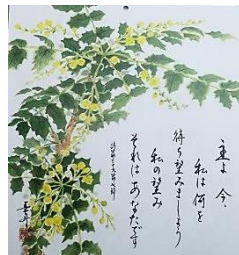 主よ 今、
私は何を
待ち望みましょう
私の望み
それはあなたです